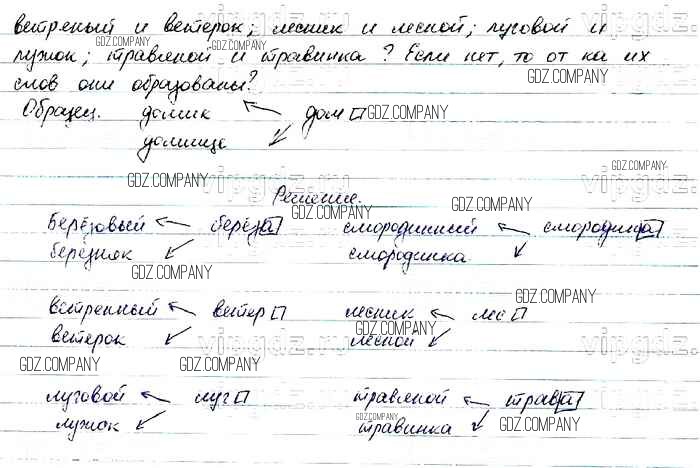 ветреный и ветерок; лесник и лесной; луговой и
лужок; травяной и травинка? Если нет, то от ка их
слов они образованы?
Образец. домик ← дом
домище
Решение.
Берёзовый ← берёза смородинный ← смородина
березняк смородинка
ветренный ← ветер лесник ← лес
ветерок лесной
луговой ← луг травяной ← трава
лужок травинка
GDZ.COMPANY
vipgdz.ru